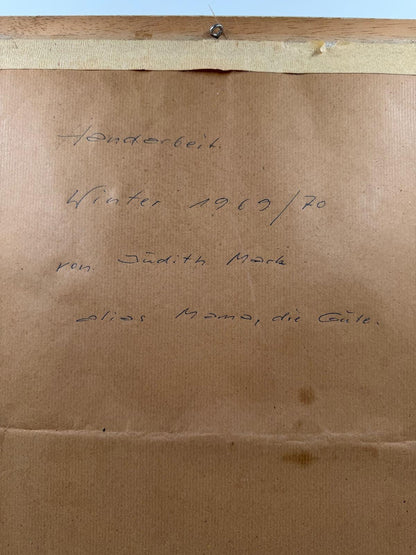 Handarbeit.
Winter 1969/70
von Judith Mack
alias Mama, die Gute.